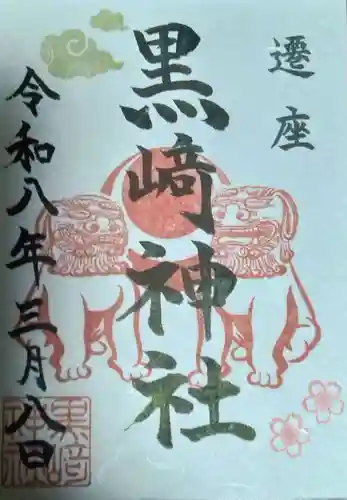 遷座
黒﨑神社
令和八年三月八日
黒﨑神社